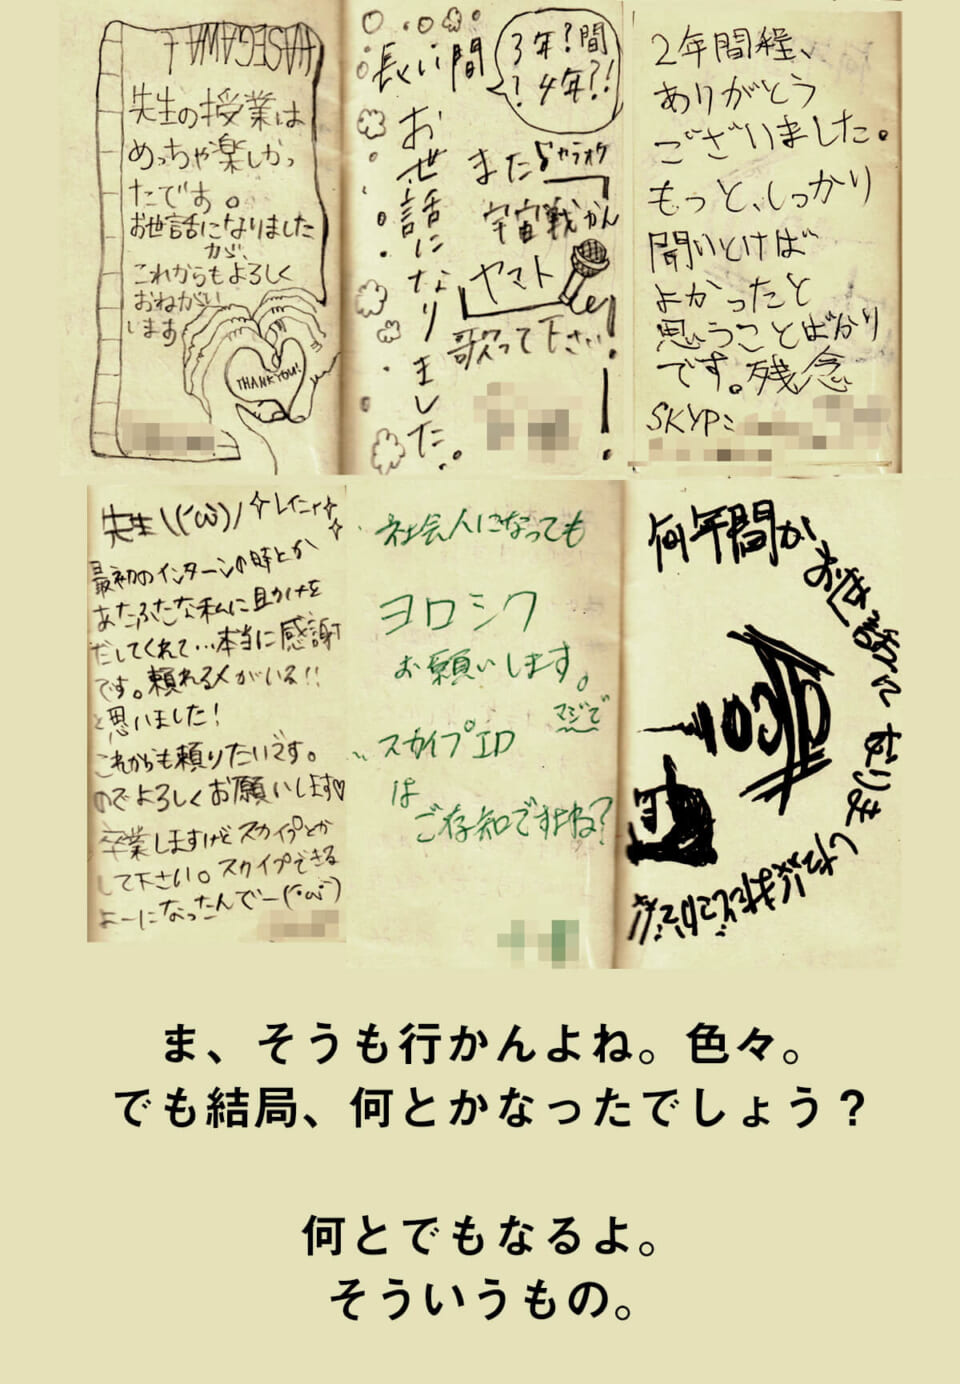 HASEGAWA
先生の授業は
めっちゃ楽しかっ
たです。
お世話になりました
が、
これからもよろしく
おねがい
います
THANKYOU!
長い間
お世話になりました。
3年?間
? 4年?!
また カラオケ
宇宙戦かん
ヤマト
歌って下さい!
2年間程、
ありがとう
ございました。
もっと、しっかり
聞いとけば
よかったと
思うことばかり
です。残念
SKYP:
先生\(('ω'))/
最初のインターンの時とか
あたふたな私に目かけを
だしてくれて…本当に感謝
です。頼れる人がいる!!
と思いました!
これからも頼りたいです。
のでよろしくお願いします♡
卒業しますけどスカイプとか
して下さい。スカイプできる
よーになったんでー('ω')
社会人になっても
ヨロシク
お願いします。
マジで
スカイプID
は
ご存知ですよね?
何年間か
お世話に なりま
した
ま、そうも行かんよね。色々。
でも結局、何とかなったでしょう？
何とでもなるよ。
そういうもの。